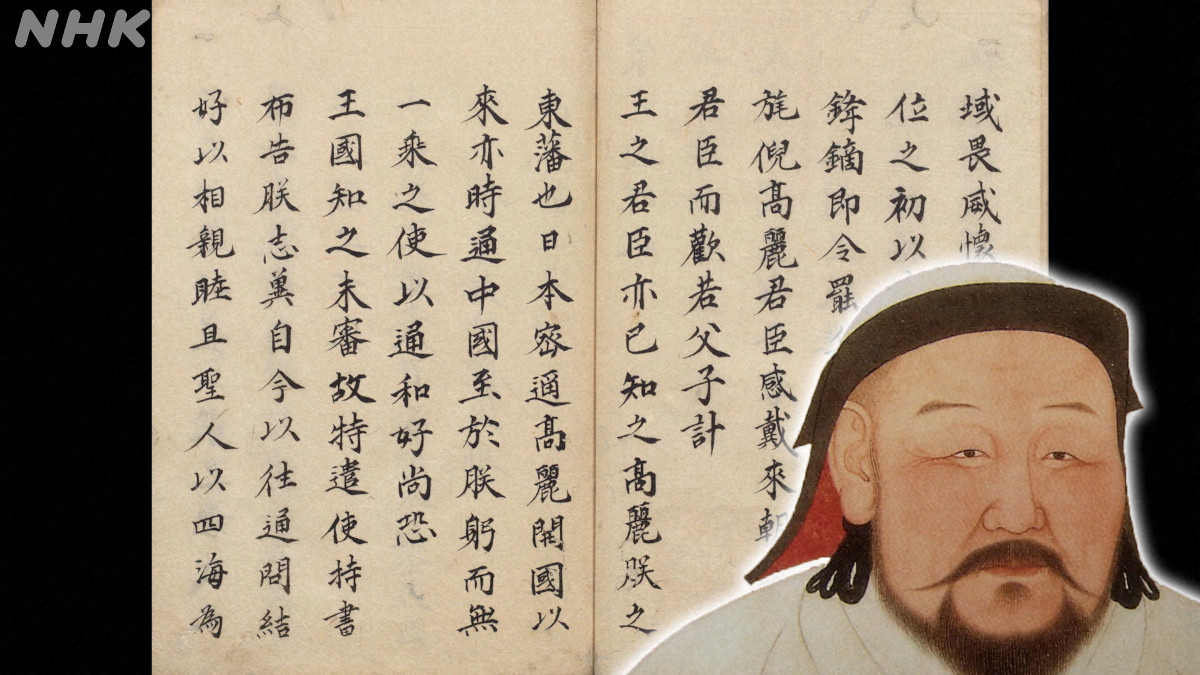 NHK
域畏威懷
位之初以
鋒鏑即令罷
旄倪髙麗君臣感戴來朝
君臣而歡若父子計
王之君臣亦已知之髙麗朕之
東藩也日本密邇髙麗開國以
來亦時通中國至於朕躬而無
一乘之使以通和好尚恐
王國知之未審故特遣使持書
布告朕志冀自今以往通問結
好以相親睦且聖人以四海為